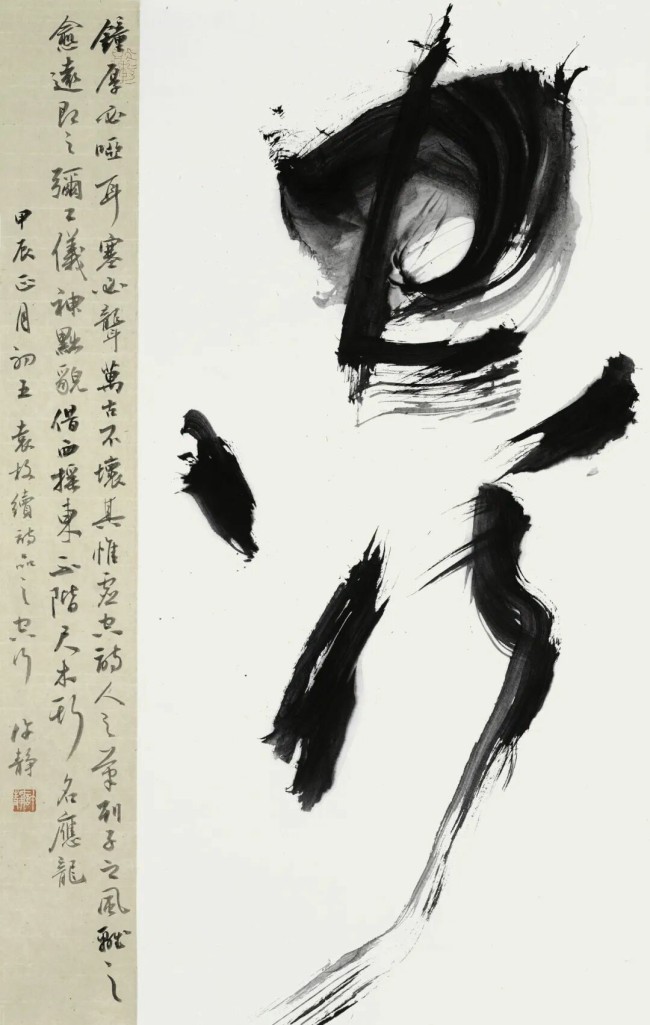 鐘厚必啞耳塞必聾萬古不壞其惟虛空詩人之筆列子之風離之
愈遠即之彌工儀神黜貌借西搖東不階尺水斯名應龍
甲辰正月初五 袁枚續詩品之空行 許靜